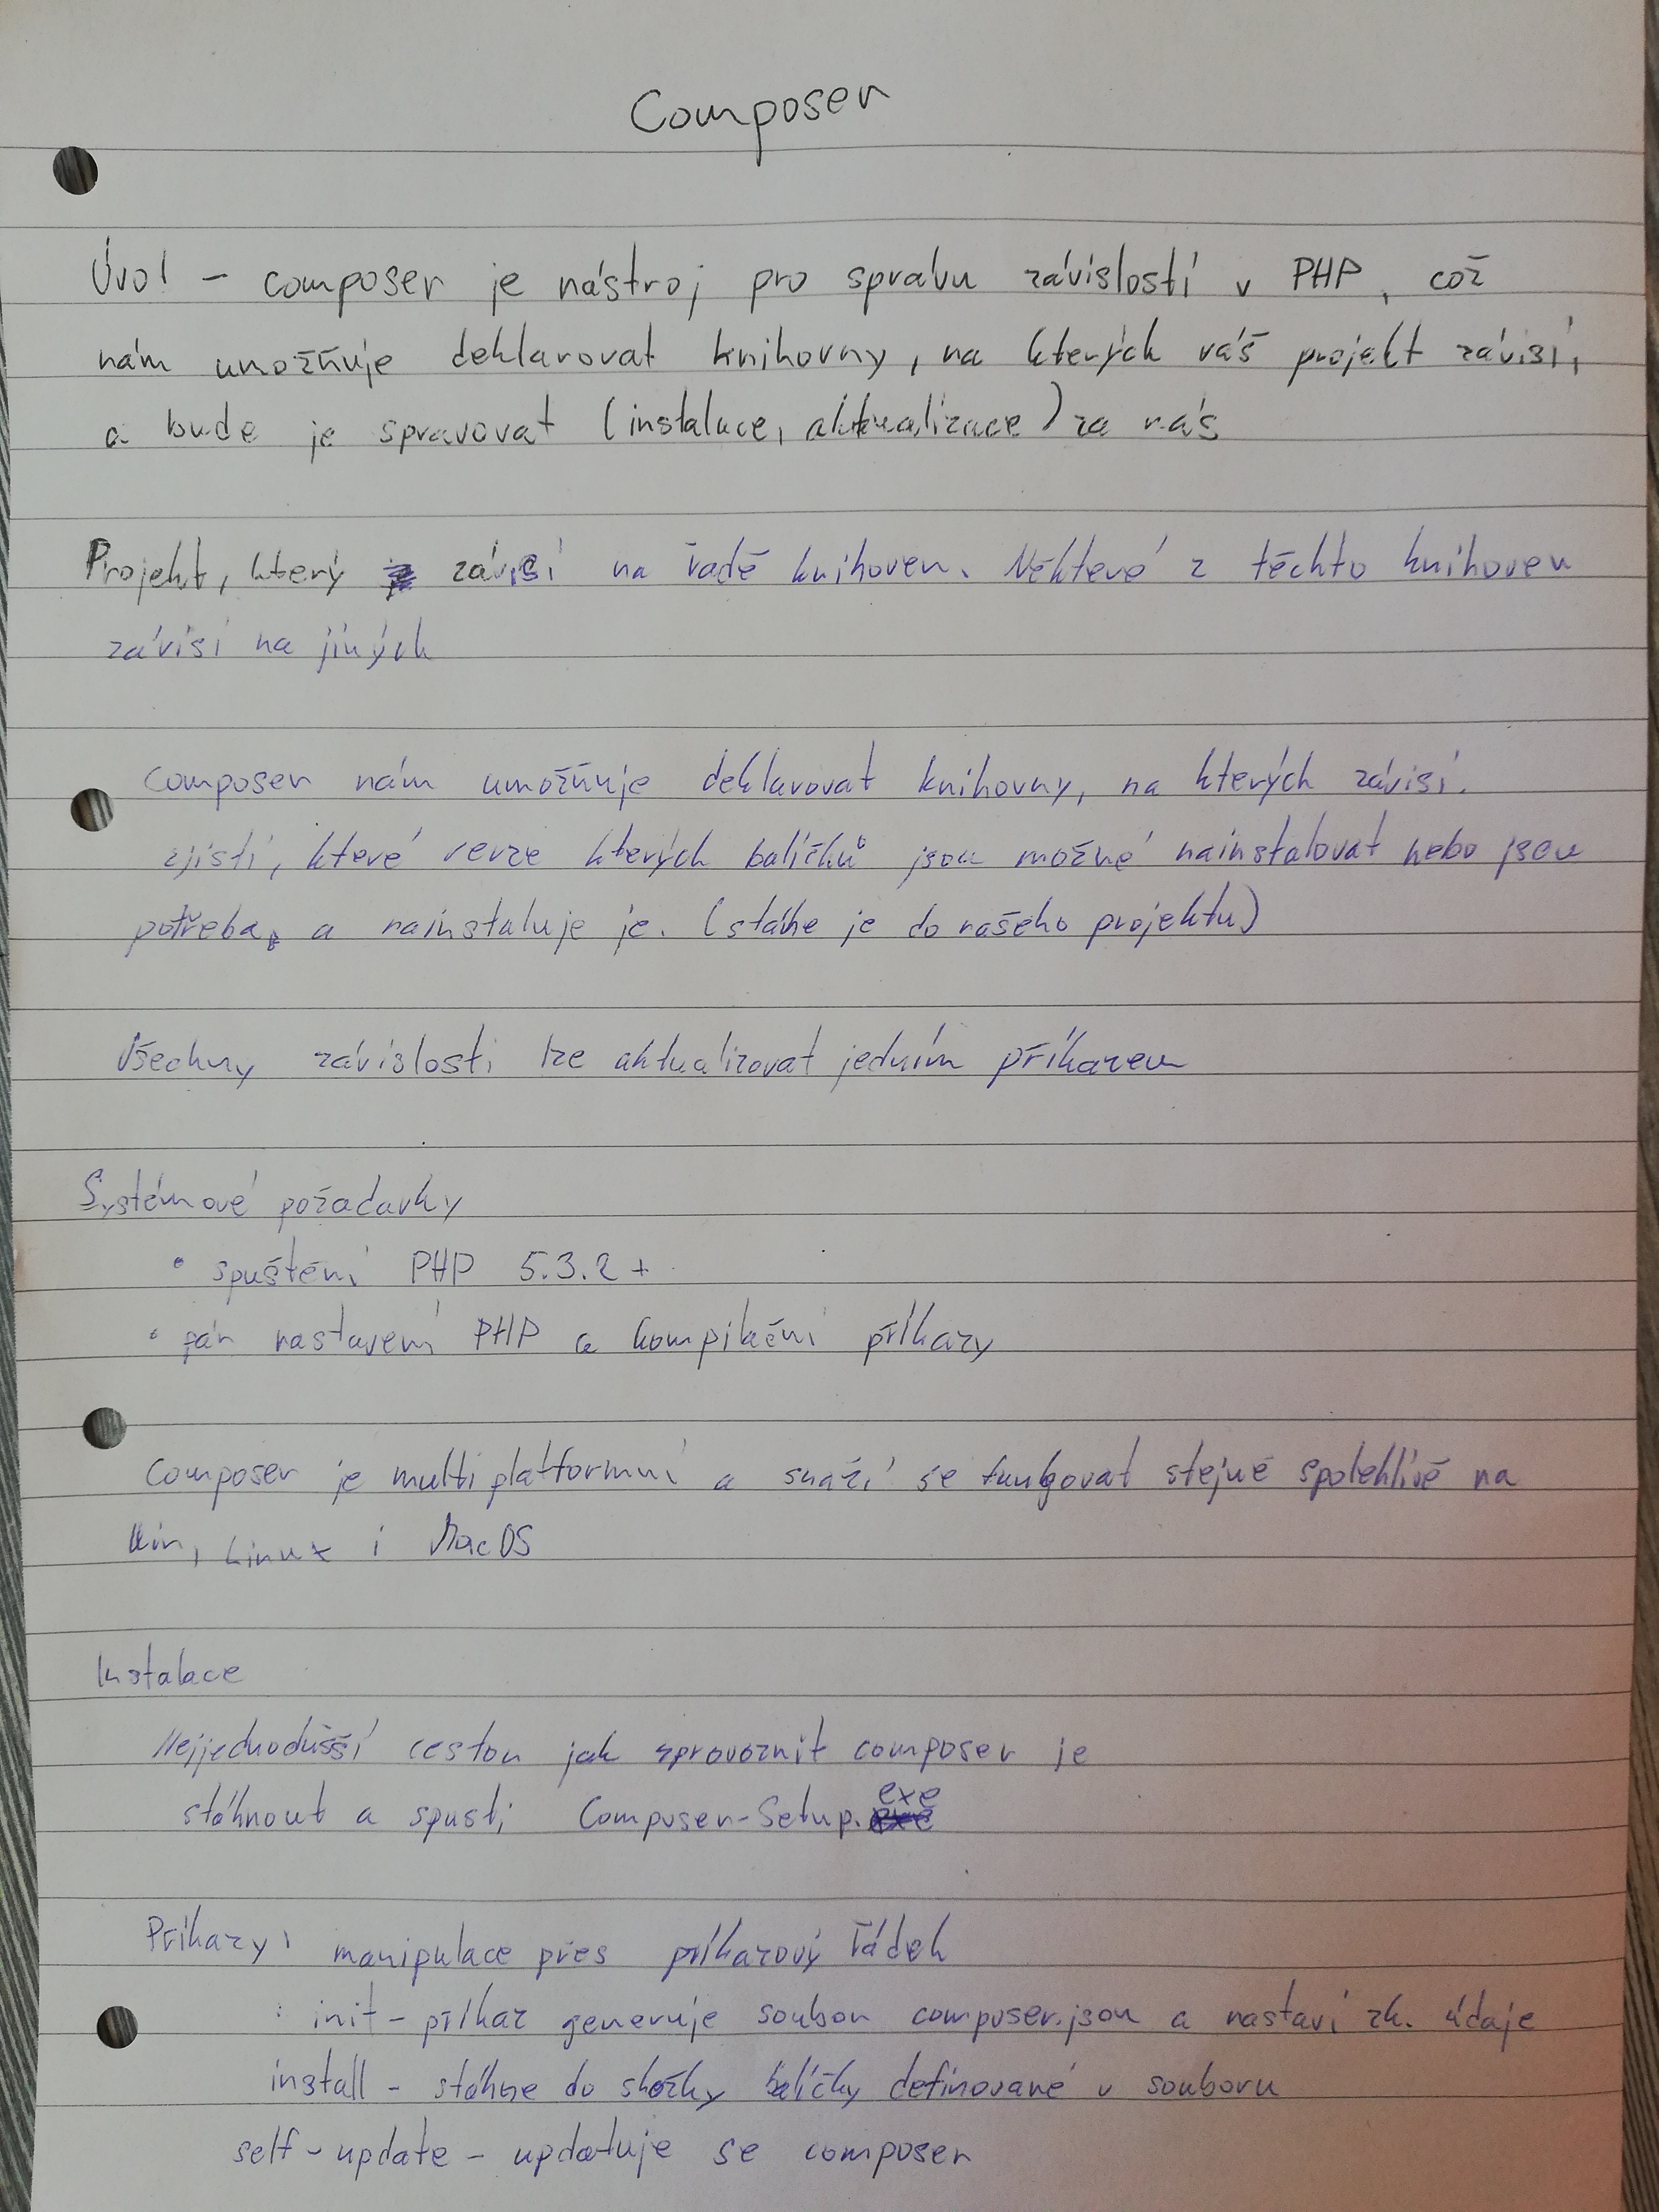 Composer
Úvod - composer je nástroj pro správu závislostí v PHP, což
nám umožňuje deklarovat knihovny, na kterých váš projekt závisí,
a bude je spravovat (instalace, aktualizace) za nás
Projekt, který závisí na řadě knihoven. Některé z těchto knihoven
závisí na jiných
Composer nám umožňuje deklarovat knihovny, na kterých závisí.
zjistí, které verze kterých balíčků jsou možné nainstalovat nebo jsou
potřeba, a nainstaluje je. (stáhe je do našeho projektu)
Všechny závislosti lze aktualizovat jedním příkazem
Systémové požadavky
• spuštění PHP 5.3.2 +
• pár nastavení PHP a kompilační příkazy
Composer je multiplatformní a snaží se fungovat stejně spolehlivě na
Win, Linux i MacOS
Instalace
Nejjednodušší cestou jak zprovoznit composer je
stáhnout a spusti Composer-Setup.exe
Příkazy: manipulace přes příkazový řádek
: init - příkaz generuje soubor composer.json a nastaví zk. údaje
install - stáhne do složky balíčky definované v souboru
self-update - updatuje se composer